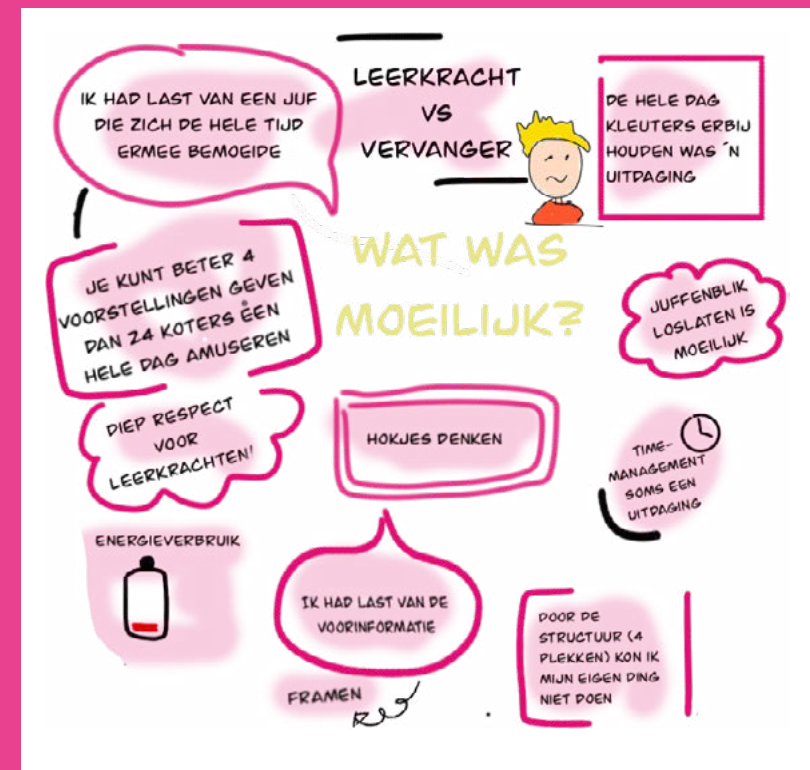 IK HAD LAST VAN EEN JUF
DIE ZICH DE HELE TIJD
ERMEE BEMOEIDE
LEERKRACHT
VS
VERVANGER
DE HELE DAG
KLEUTERS ERBIJ
HOUDEN WAS ´N
UITDAGING
WAT WAS
MOEILIJK?
JE KUNT BETER 4
VOORSTELLINGEN GEVEN
DAN 24 KOTERS ÉEN
HELE DAG AMUSEREN
JUFFENBLIK
LOSLATEN IS
MOEILIJK
DIEP RESPECT
VOOR
LEERKRACHTEN!
HOKJES DENKEN
TIME-
MANAGEMENT
SOMS EEN
UITDAGING
ENERGIEVERBRUIK
IK HAD LAST VAN DE
VOORINFORMATIE
DOOR DE
STRUCTUUR (4
PLEKKEN) KON IK
MIJN EIGEN DING
NIET DOEN
FRAMEN